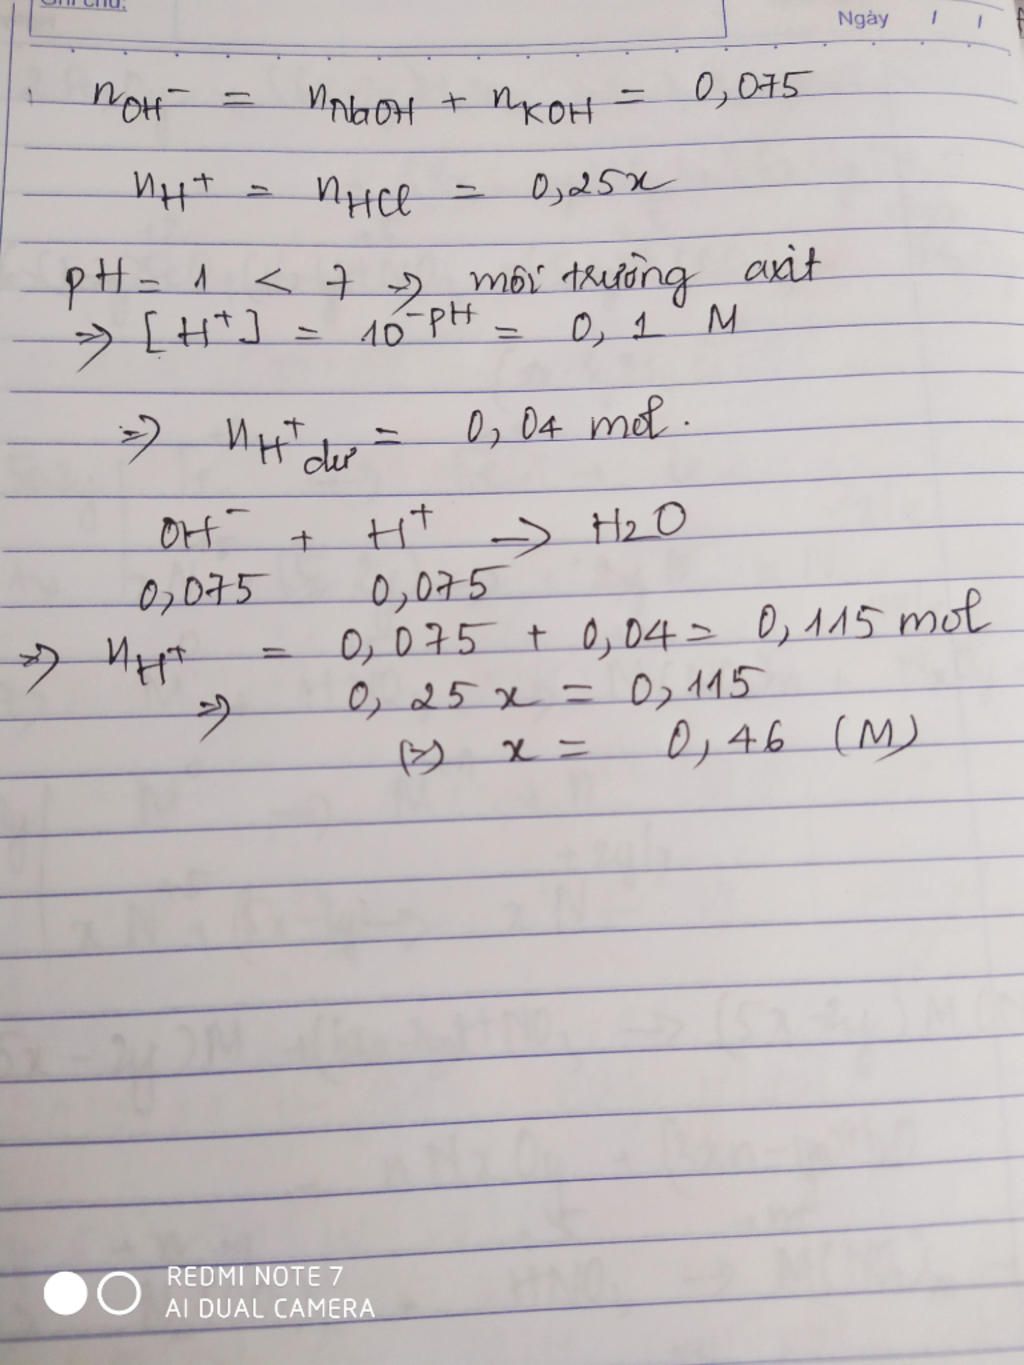 Ghi chú:
Ngày / /
nOH⁻ = nNaOH + nKOH = 0,075
nH⁺ = nHCl = 0,25x
pH = 1 < 7 => môi trường axit
=> [H⁺] = 10^-pH = 0,1 M
=> nH⁺ dư = 0,04 mol.
OH⁻ + H⁺ -> H2O
0,075 0,075
=> nH⁺ = 0,075 + 0,04 = 0,115 mol
=> 0,25x = 0,115
(=) x = 0,46 (M)
REDMI NOTE 7
AI DUAL CAMERA